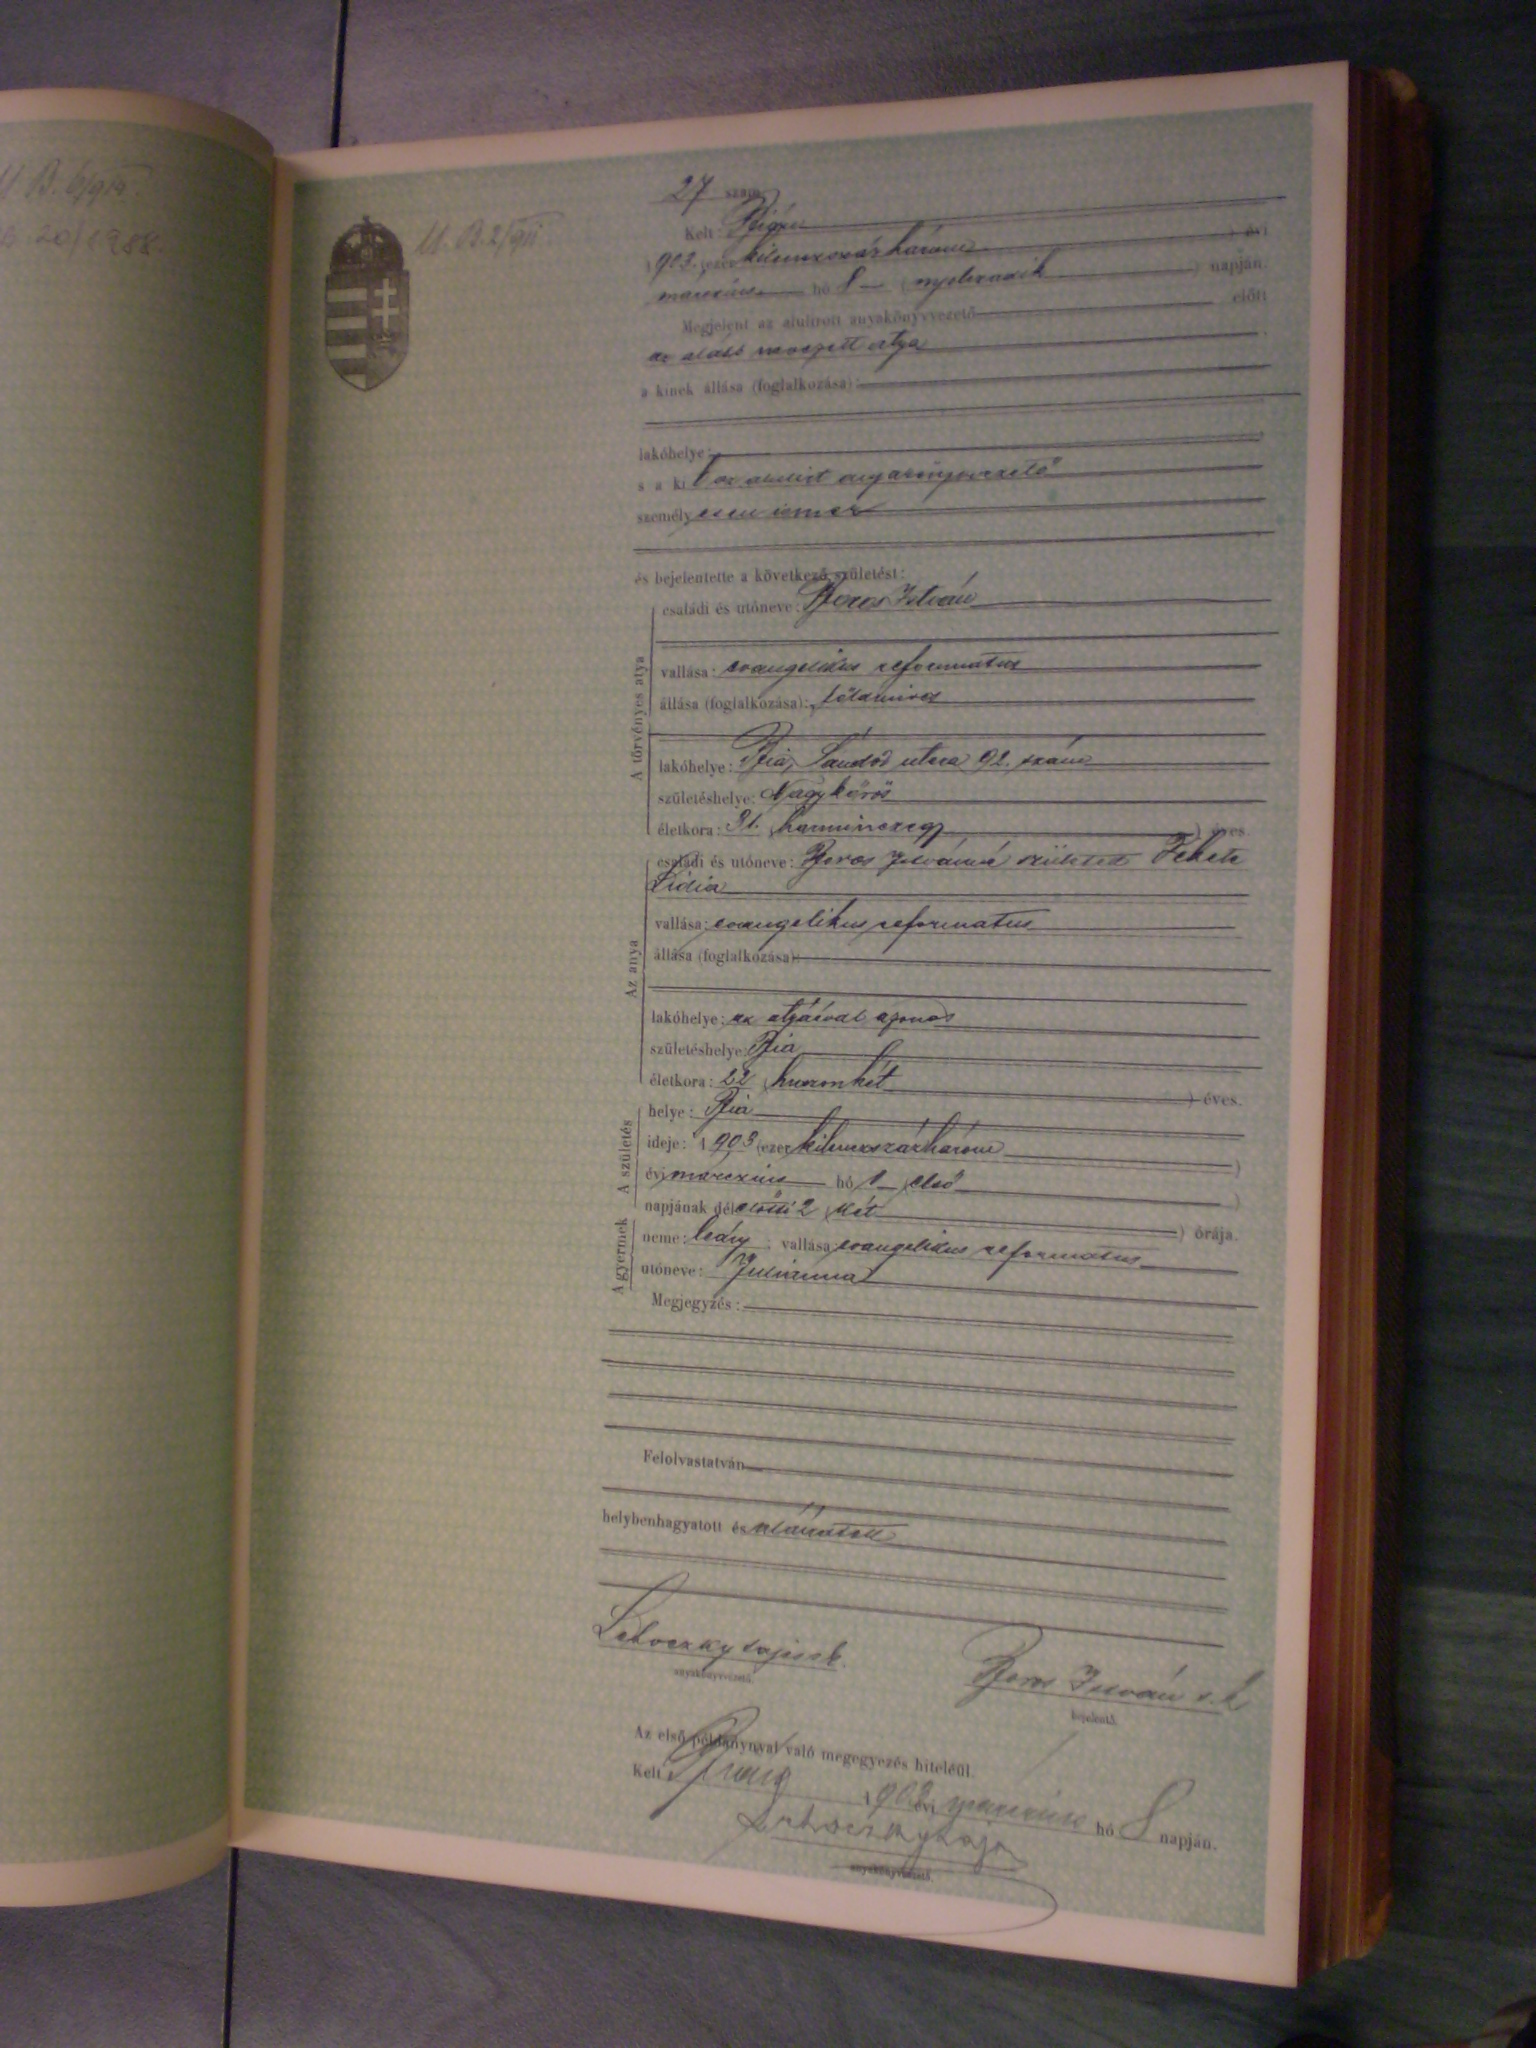 U. B. 6/914.
20/1988.
U. B. 2/911
27 szám.
Kelt: Bián
1903. (ezer kilenczszázhárom) évi
márczius hó 8 (nyolczadik) napján.
Megjelent az alulirott anyakönyvvezető előtt
az alább nevezett atya
a kinek állása (foglalkozása):
lakóhelye:
s a kit az alulirt anyakönyvvezető
személyesen ismer
és bejelentette a következő születést:
A törvényes atya
családi és utóneve: Boros István
vallása: evangelikus reformatus
állása (foglalkozása): földmives
lakóhelye: Bia, Sándor utcza 92. szám
születéshelye: Nagykőrös
életkora: 31. (harminczegy) éves.
Az anya
családi és utóneve: Boros Istvánné született Fekete
Lidia
vallása: evangelikus reformatus
állása (foglalkozása):
lakóhelye: az atyáéval azonos
születéshelye: Bia
életkora: 22 (huszonkét) éves.
A születés
helye: Bia
ideje: 1903 (ezer kilenczszázhárom)
évi márczius hó 1 (első)
napjának délelőtti 2 (két) órája.
A gyermek
neme: leány; vallása: evangelikus reformatus
utóneve: Julianna
Megjegyzés:
Felolvastatván
helybenhagyatott és aláiratott
Lehoczky Lajos s.k.
anyakönyvvezető.
Boros István s. k.
bejelentő.
Az első példánynyal való megegyezés hiteléül.
Kelt Bián 1903 évi márczius hó 8 napján.
Lehoczky Lajos
anyakönyvvezető.